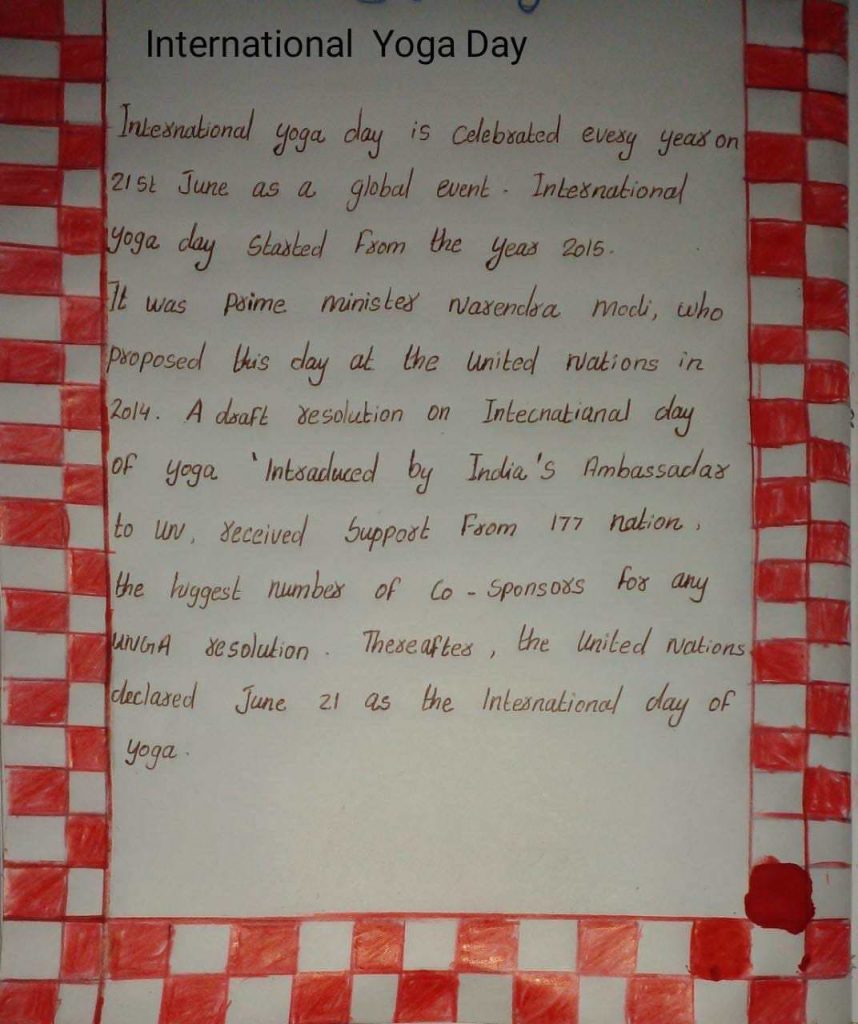 International Yoga Day
International yoga day is celebrated every year on
21st June as a global event. International
yoga day started from the year 2015.
It was prime minister Narendra modi, who
proposed this day at the united nations in
2014. A draft resolution on Intecnatianal day
of yoga 'Intraduced by India's Ambassadar
to UN, received support from 177 nation,
the higgest number of co-sponsors for any
UNGA resolution. Thereafter, the united nations
declared June 21 as the International day of
yoga.